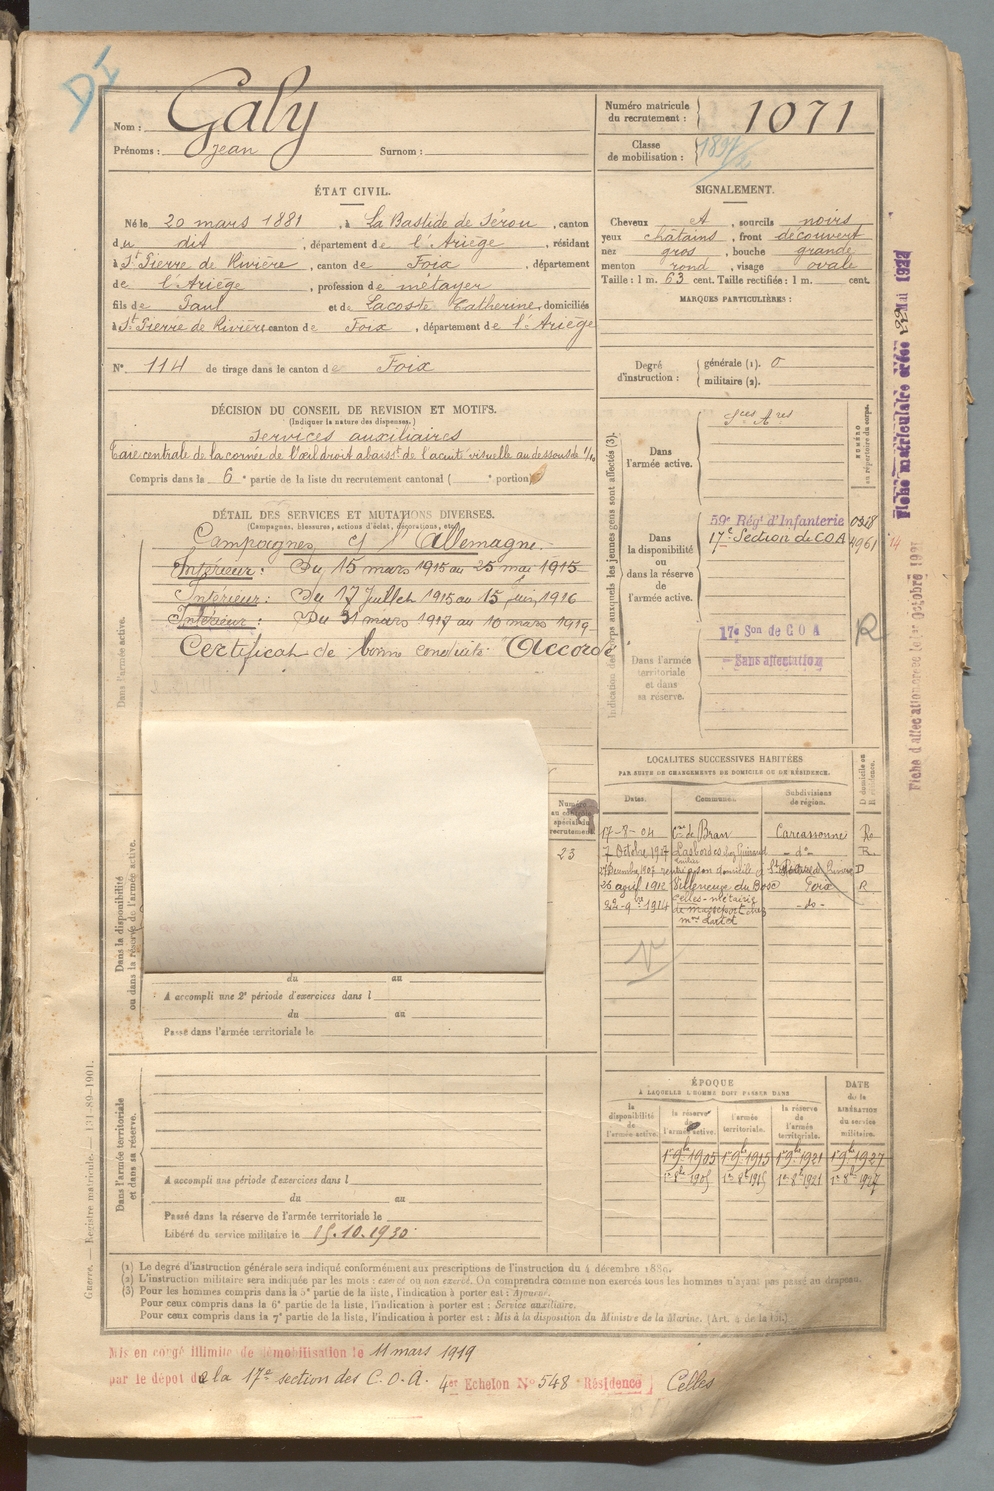 DI
Nom : Galy
Prénoms : Jean Surnom :
Numéro matricule du recrutement : 1071
Classe de mobilisation :
ÉTAT CIVIL.
Né le 20 mars 1881, à La Bastide de Sérou, canton
du dit, département de l'Ariège, résidant
à St Pierre de Rivière, canton de Foix, département
de l'Ariège, profession de métayer
fils de Paul et de Lacoste Catherine, domiciliés
à St Pierre de Rivière canton de Foix, département de l'Ariège
N° 114 de tirage dans le canton de Foix
SIGNALEMENT.
Cheveux et, sourcils noirs
yeux châtains, front découvert
nez gros, bouche grande
menton rond, visage ovale
Taille : 1 m. 63 cent. Taille rectifiée : 1 m. cent.
MARQUES PARTICULIÈRES :
Degré d'instruction : générale (1). 0
militaire (2).
DÉCISION DU CONSEIL DE REVISION ET MOTIFS.
(Indiquer la nature des dispenses.)
Services auxiliaires
Taie centrale de la cornée de l'œil droit abaisst de l'acuité visuelle au dessous de 1/10
Compris dans la 6e partie de la liste du recrutement cantonal ( e portion)
DÉTAIL DES SERVICES ET MUTATIONS DIVERSES.
(Campagnes, blessures, actions d'éclat, décorations, etc.)
Campagnes c/ l'Allemagne.
Intérieur : Du 15 mars 1915 au 25 mai 1915
Intérieur : Du 17 Juillet 1915 au 15 juin 1916
Intérieur : Du 31 mars 1917 au 10 mars 1919
Certificat de bonne conduite : Accordé
Dans l'armée active.
Indication des corps auxquels les jeunes gens sont affectés (3).
NUMÉRO au répertoire du corps.
Dans l'armée active. Sces Ares
Dans la disponibilité ou dans la réserve de l'armée active.
59e Rég' d'Infanterie 0318
17e Section de COA 4961 14
Dans l'armée territoriale et dans sa réserve.
17e Son de C O A
Sans affectation
R
Fiche matriculaire créée 22 Mai 1922
LOCALITÉS SUCCESSIVES HABITÉES
PAR SUITE DE CHANGEMENTS DE DOMICILE OU DE RÉSIDENCE.
Dates. Communes. Subdivisions de région. D domicile ou R résidence.
17-8-04 Cne de Bram Carcassonne R.
7 Octobre 1907 Lasbordes chez Guiraud - do - R.
D
26 août 1912 Villeneuve du Bosc Foix R
22-9bre 1914 Celles - métairie de Massefort chez - do -
Dans la disponibilité ou dans la réserve de l'armée active.
Numéro au contrôle spécial du recrutement
23
du au
A accompli une 2e période d'exercices dans l
du au
Passé dans l'armée territoriale le
Dans l'armée territoriale et dans sa réserve.
A accompli une période d'exercices dans l
du au
Passé dans la réserve de l'armée territoriale le
Libéré du service militaire le 15.10.1930
ÉPOQUE
À LAQUELLE L'HOMME DOIT PASSER DANS
la disponibilité de l'armée active. la réserve de l'armée active. l'armée territoriale. la réserve de l'armée territoriale. DATE de la LIBÉRATION du service militaire.
1er 9bre 1905 1er 9bre 1915 1er 9bre 1921 1er 9bre 1927
1er 8bre 1905 1er 8bre 1915 1er 8bre 1921 1er 8bre 1927
(1) Le degré d'instruction générale sera indiqué conformément aux prescriptions de l'instruction du 4 décembre 1889.
(2) L'instruction militaire sera indiquée par les mots : exercé ou non exercé. On comprendra comme non exercés tous les hommes n'ayant pas passé au drapeau.
(3) Pour les hommes compris dans la 5e partie de la liste, l'indication à porter est : Ajourné.
Pour ceux compris dans la 6e partie de la liste, l'indication à porter est : Service auxiliaire.
Pour ceux compris dans la 7e partie de la liste, l'indication à porter est : Mis à la disposition du Ministre de la Marine. (Art. 4 de la loi.)
Guerre. — Registre matricule. — 131-89-1901.
Mis en congé illimité de démobilisation le 11 mars 1919
par le dépôt de la 17e section des C.O.A. 4e Echelon N° 548 Résidence Celles